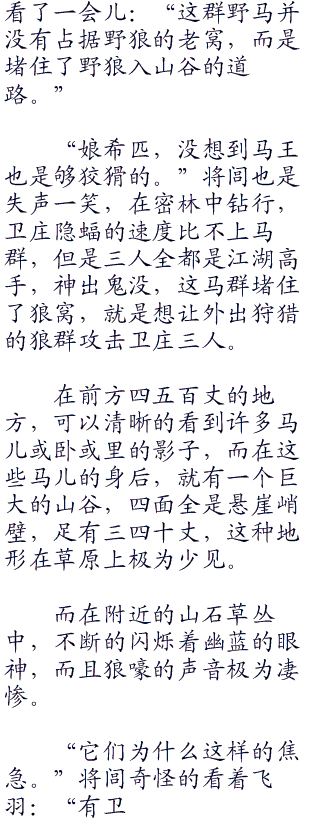 看了一会儿：“这群野马并
没有占据野狼的老窝，而是
堵住了野狼入山谷的道
路。”
“娘希匹，没想到马王
也是够狡猾的。”将闾也是
失声一笑，在密林中钻行，
卫庄隐蝠的速度比不上马
群，但是三人全都是江湖高
手，神出鬼没，这马群堵住
了狼窝，就是想让外出狩猎
的狼群攻击卫庄三人。
在前方四五百丈的地
方，可以清晰的看到许多马
儿或卧或里的影子，而在这
些马儿的身后，就有一个巨
大的山谷，四面全是悬崖峭
壁，足有三四十丈，这种地
形在草原上极为少见。
而在附近的山石草丛
中，不断的闪烁着幽蓝的眼
神，而且狼嚎的声音极为凄
惨。
“它们为什么这样的焦
急。”将闾奇怪的看着飞
羽：“有卫